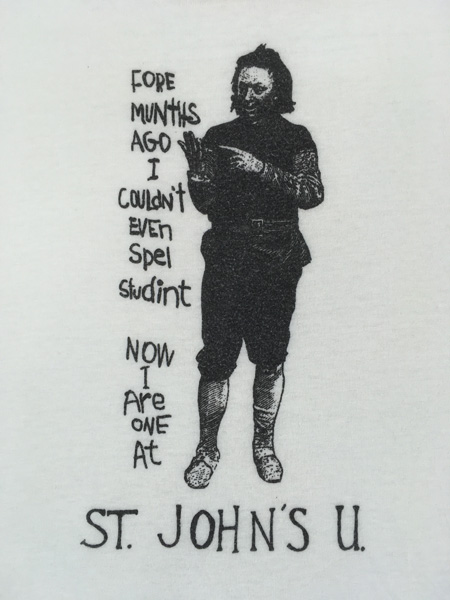 FORE
MUNTHS
AGO
I
COULDN'T
EVEN
Spel
studint
NOW
I
Are
ONE
At
ST. JOHN'S U.